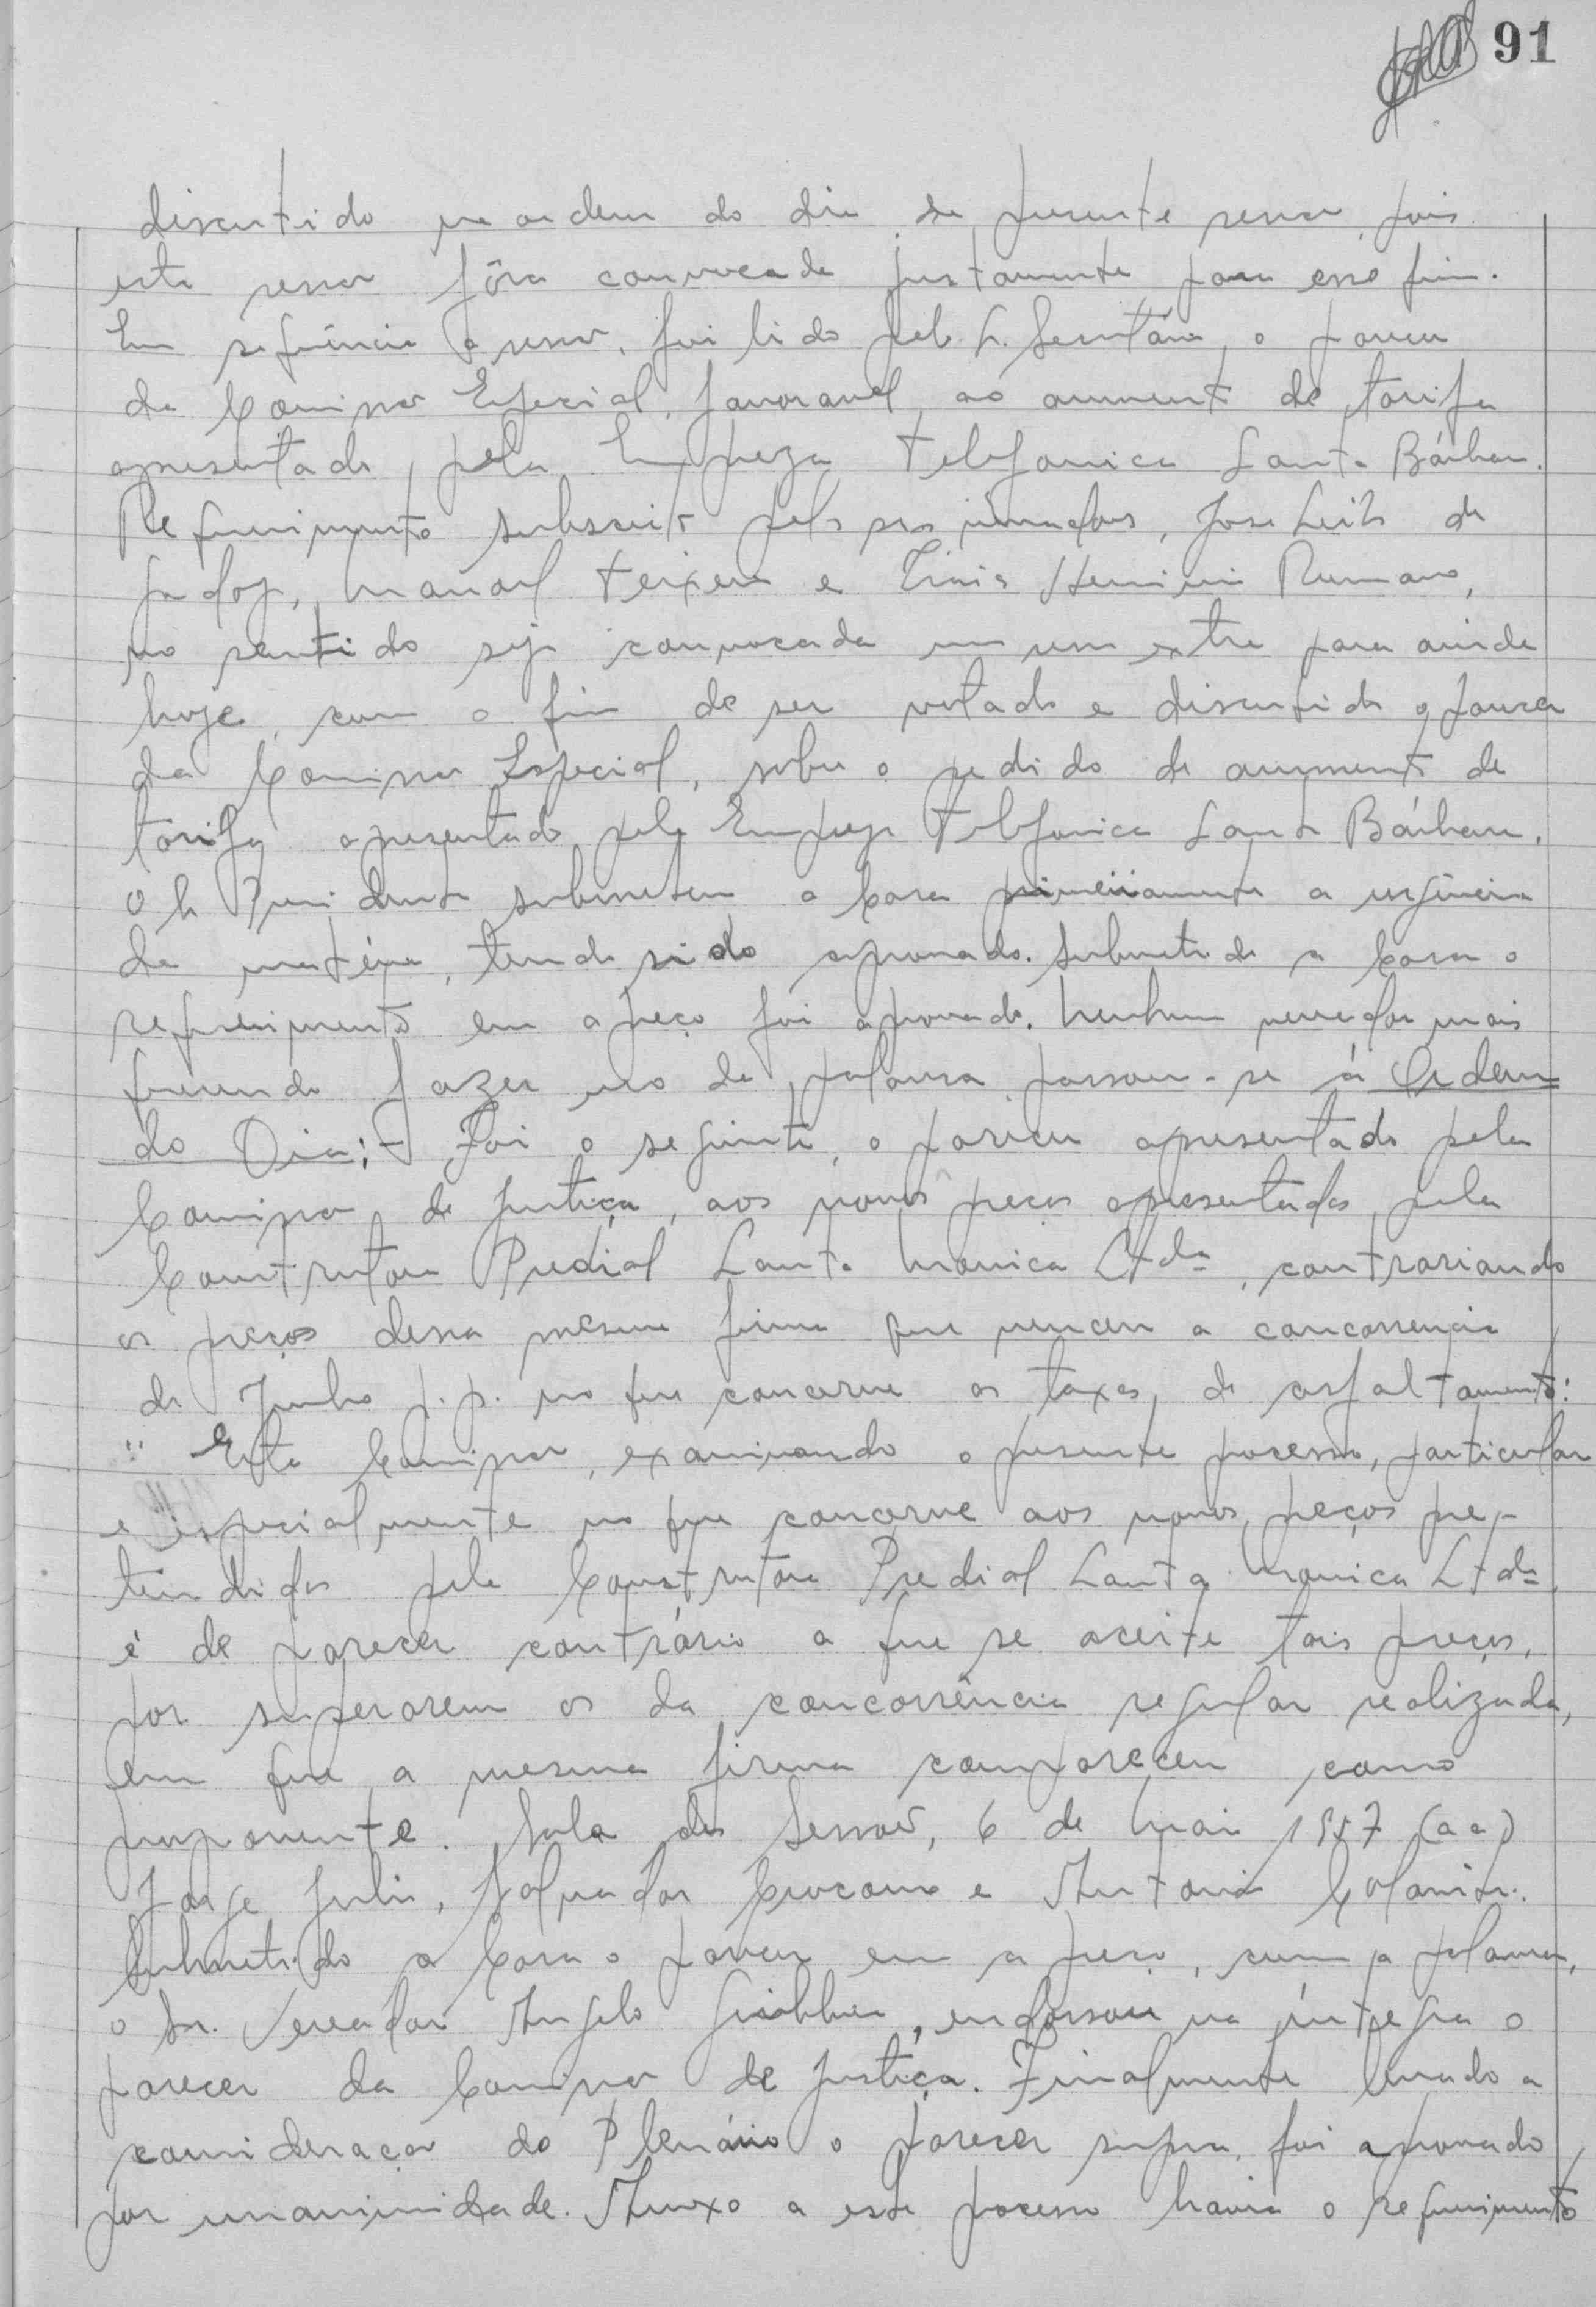 91
discutido na ordem do dia da presente sessão, pois
esta sessão fôra convocada justamente para esse fim.
Em sequência a sessão, foi lido pelo S. Secretário, o parecer
da Comissão Especial, favoravel, ao aumento de tarifa
apresentado pela Empreza Telefonica Santa Bárbara.
Requerimento subscrito pelos srs vereadores, José Leite de
Godoy, Manoel Teixeira e Romano,
no sentido seja convocada uma sessão extra para ainda
hoje, com o fim de ser votado e discutido o parecer
da Comissão Especial, sobre o pedido de aumento de
tarifa apresentado pela Empreza Telefonica Santa Bárbara.
O Sr Presidente submeteu a Casa primeiramente a urgência
da matéria, tendo sido aprovado. Submetido a Casa o
requerimento em apreço foi aprovado. Nenhum vereador mais
querendo fazer uso da palavra passou-se á Ordem
do Dia:- Foi o seguinte, o parecer apresentado pela
Comissão de Justiça, aos novos preços apresentados, pela
Construtora Predial Santa Monica Ltda, contrariando
os preços dessa mesma firma que venceu a concorrencia
de Junho p.p. no que concerne as taxas de asfaltamento:
"Esta Comissão, examinando o presente processo, particular
e especialmente no que concerne aos novos preços pre-
tendidos pela Construtora Predial Santa Monica Ltda
é de parecer contrário a que se aceite tais preços,
por superarem os da concorrência regular realizada,
em que a mesma firma compareceu como
proponente. Sala das Sessões, 6 de Maio 1957 (aa)
Jorge Julio, Salvador e Antonio
Submetido a Casa o parecer em apreço, com a palavra,
o Snr. Vereador Angelo, endossou na íntegra o
parecer da Comissão de Justiça. Finalmente levado a
consideração do Plenário o parecer supra, foi aprovado
por unanimidade. Anexo a este processo havia o requerimento